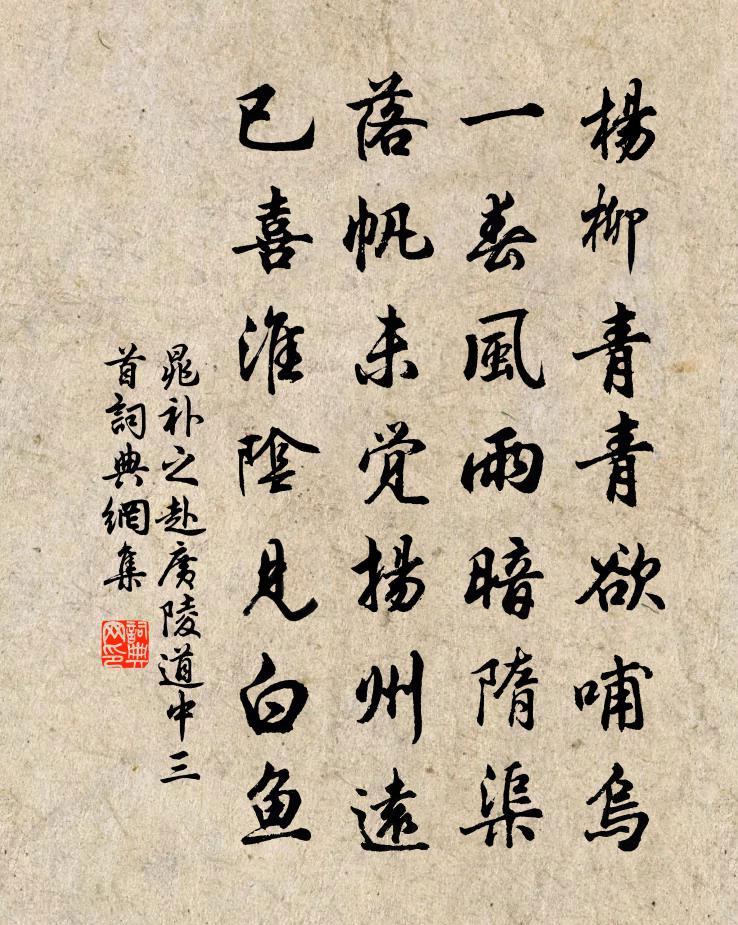 楊柳青青欲哺烏
一春風雨暗隋渠
落帆未覺揚州遠
已喜淮陰見白魚
晁补之赴廣陵道中三
首詞典網集
詞典
网印